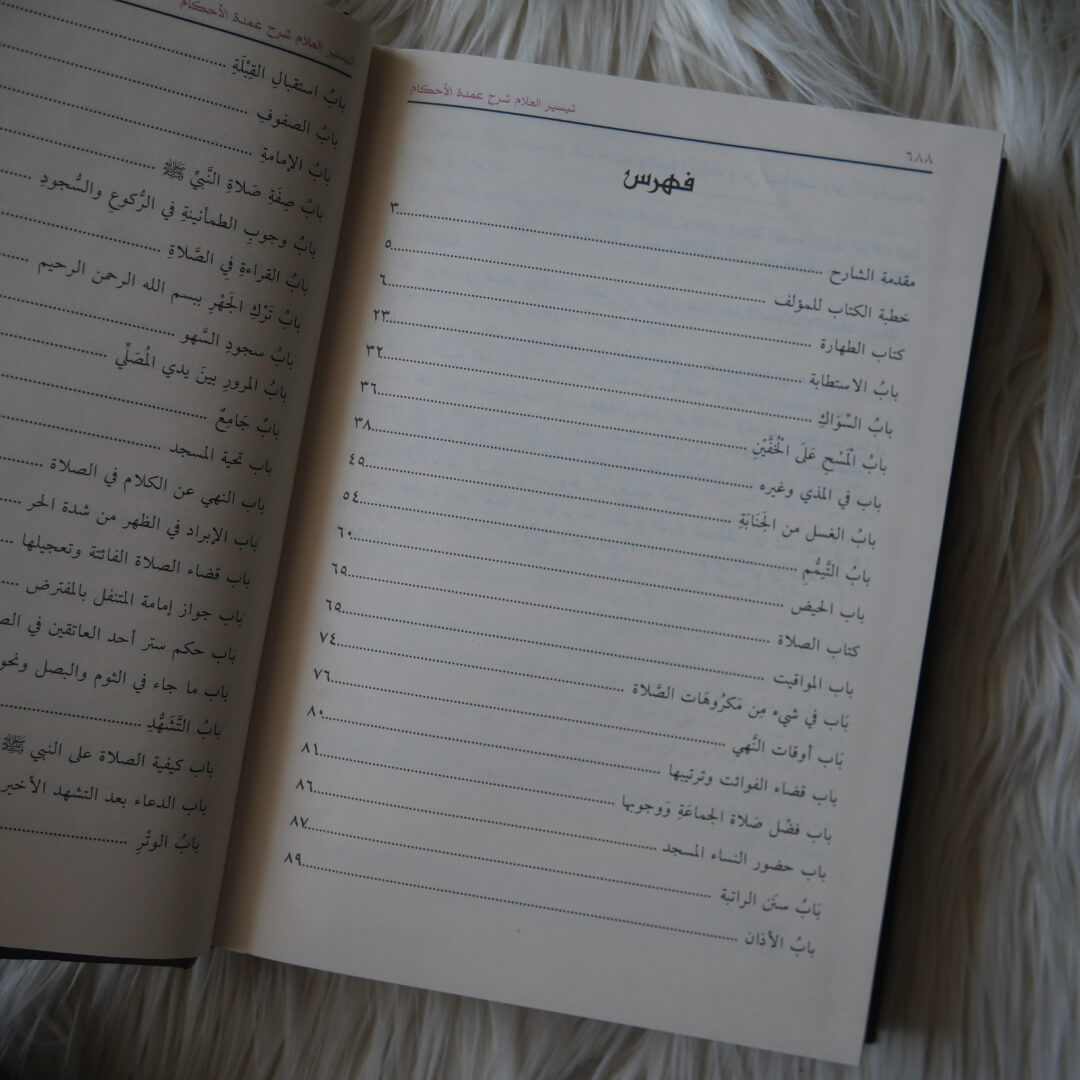 تيسير العلام شرح عمدة الأحكام
٦٨٨
فهرس
مقدمة الشارح ................ ٣
خطبة الكتاب للمؤلف ................ ٥
كتاب الطهارة ................ ٦
بابُ الاستطابة ................ ٢٣
بابُ السِّوَاكِ ................ ٣٢
بابُ الْمَسْحِ عَلَى الْخُفَّيْنِ ................ ٣٦
باب في المذي وغيره ................ ٣٨
بابُ الغسل من الجَنَابَةِ ................ ٤٥
بابُ التَّيمُّمِ ................ ٥٤
باب الحيض ................ ٦٠
كتاب الصلاة ................ ٦٥
باب المواقيت ................ ٦٥
بَاب في شيء مِن مَكرُوهَات الصَّلاة ................ ٧٤
بَاب أوقات النَّهي ................ ٧٦
باب قضاء الفوائت وترتيبها ................ ٨٠
باب فضْل صَلاة الجماعَةِ وَوجوبها ................ ٨١
باب حضور النساء المسجد ................ ٨٦
بَابُ سنَن الراتبة ................ ٨٧
بابُ الأذان ................ ٨٩
تيسير العلام شرح عمدة الأحكام
بابُ استقبالِ القِبْلَةِ ................
بابُ الصفوفِ ................
بابُ الإمامةِ ................
بابُ صِفَةِ صَلاةِ النَّبيِّ ﷺ ................
بابُ وجوبِ الطمأنينةِ في الرُّكوعِ والسُّجودِ ................
بابُ القراءةِ فِي الصَّلاةِ ................
بابُ تَرْكِ الجَهْرِ ببسم الله الرحمن الرحيم ................
بابُ سجودِ السَّهو ................
بابُ المرورِ بينَ يدي المُصَلِّي ................
بابٌ جَامِعٌ ................
باب تحية المسجد ................
باب النهي عن الكلام في الصلاة ................
باب الإبراد في الظهر من شدة الحر ................
باب قضاء الصلاة الفائتة وتعجيلها ................
بَاب جواز إمامة المتنفل بالمفترض ................
باب حكم ستر أحد العاتقين في
باب ما جاء في الثوم والبصل
بابُ التَّشَهُّدِ ................
باب كيفية الصلاة على النبي ﷺ
باب الدعاء بعد التشهد الأخير
بابُ الوتْرِ ................